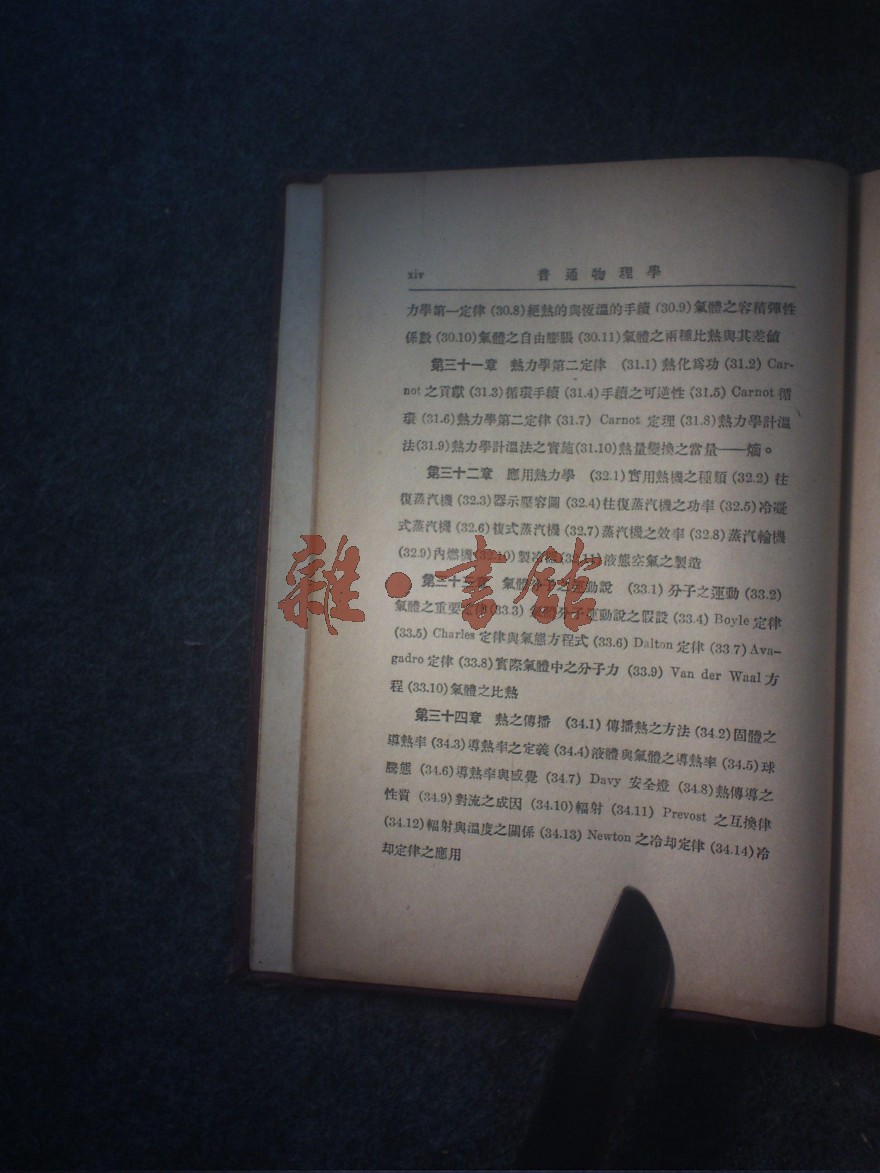 xiv 普通物理學
力學第一定律 (30.8) 絕熱的與恆溫的手續 (30.9) 氣體之容積彈性
係數 (30.10) 氣體之自由膨脹 (30.11) 氣體之兩種比熱與其差値
第三十一章 熱力學第二定律 (31.1) 熱化爲功 (31.2) Car-
not 之貢獻 (31.3) 循環手續 (31.4) 手續之可逆性 (31.5) Carnot 循
環 (31.6) 熱力學第二定律 (31.7) Carnot 定理 (31.8) 熱力學計溫
法 (31.9) 熱力學計溫法之實施 (31.10) 熱量變換之當量——熵。
第三十二章 應用熱力學 (32.1) 實用熱機之種類 (32.2) 往
復蒸汽機 (32.3) 器示壓容圖 (32.4) 往復蒸汽機之功率 (32.5) 冷凝
式蒸汽機 (32.6) 複式蒸汽機 (32.7) 蒸汽機之效率 (32.8) 蒸汽輪機
(32.9) 內燃機 (32.10) 製冷機 (32.11) 液態空氣之製造
第三十三章 氣體分子之運動說 (33.1) 分子之運動 (33.2)
氣體之重要定律 (33.3) 氣體分子運動說之假設 (33.4) Boyle 定律
(33.5) Charles 定律與氣態方程式 (33.6) Dalton 定律 (33.7) Ava-
gadro 定律 (33.8) 實際氣體中之分子力 (33.9) Van der Waal 方
程 (33.10) 氣體之比熱
第三十四章 熱之傳播 (34.1) 傳播熱之方法 (34.2) 固體之
導熱率 (34.3) 導熱率之定義 (34.4) 液體與氣體之導熱率 (34.5) 球
騰態 (34.6) 導熱率與感覺 (34.7) Davy 安全燈 (34.8) 熱傳導之
性質 (34.9) 對流之成因 (34.10) 輻射 (34.11) Prevost 之互換律
(34.12) 輻射與溫度之關係 (34.13) Newton 之冷却定律 (34.14) 冷
却定律之應用
雜·書館